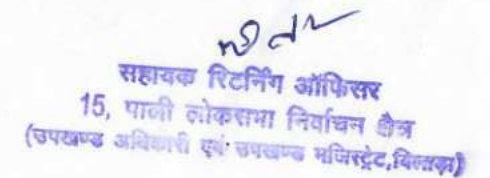 सहायक रिटर्निंग ऑफिसर
15, पाली लोकसभा निर्वाचन क्षैत्र
(उपखण्ड अधिकारी एवं उपखण्ड मजिस्ट्रेट,बिलाड़ा)